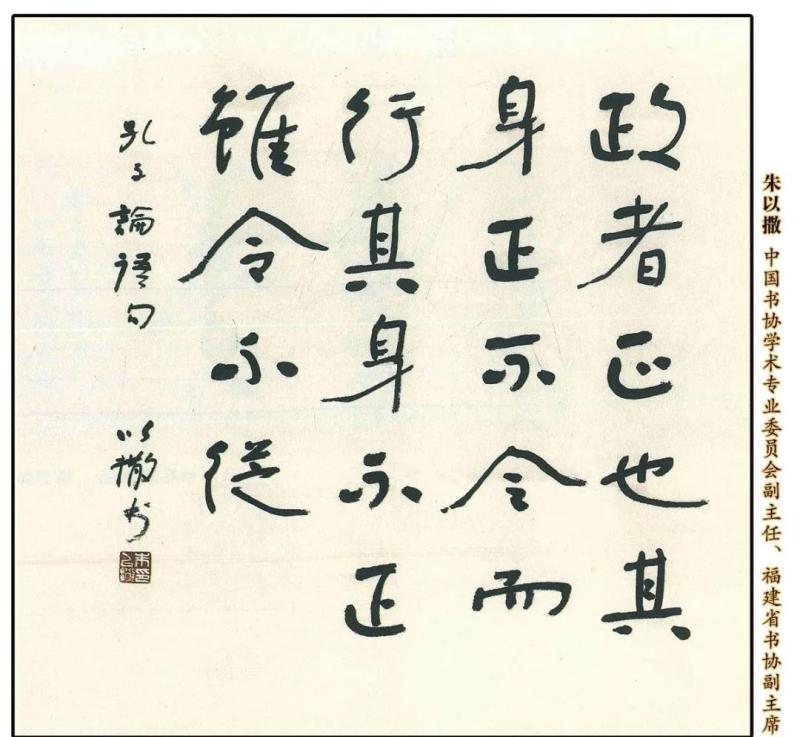 政者正也其
身正不令而
行其身不正
雖令不從
孔子論語句
以撒书
朱以撒 中国书协学术专业委员会副主任、福建省书协副主席